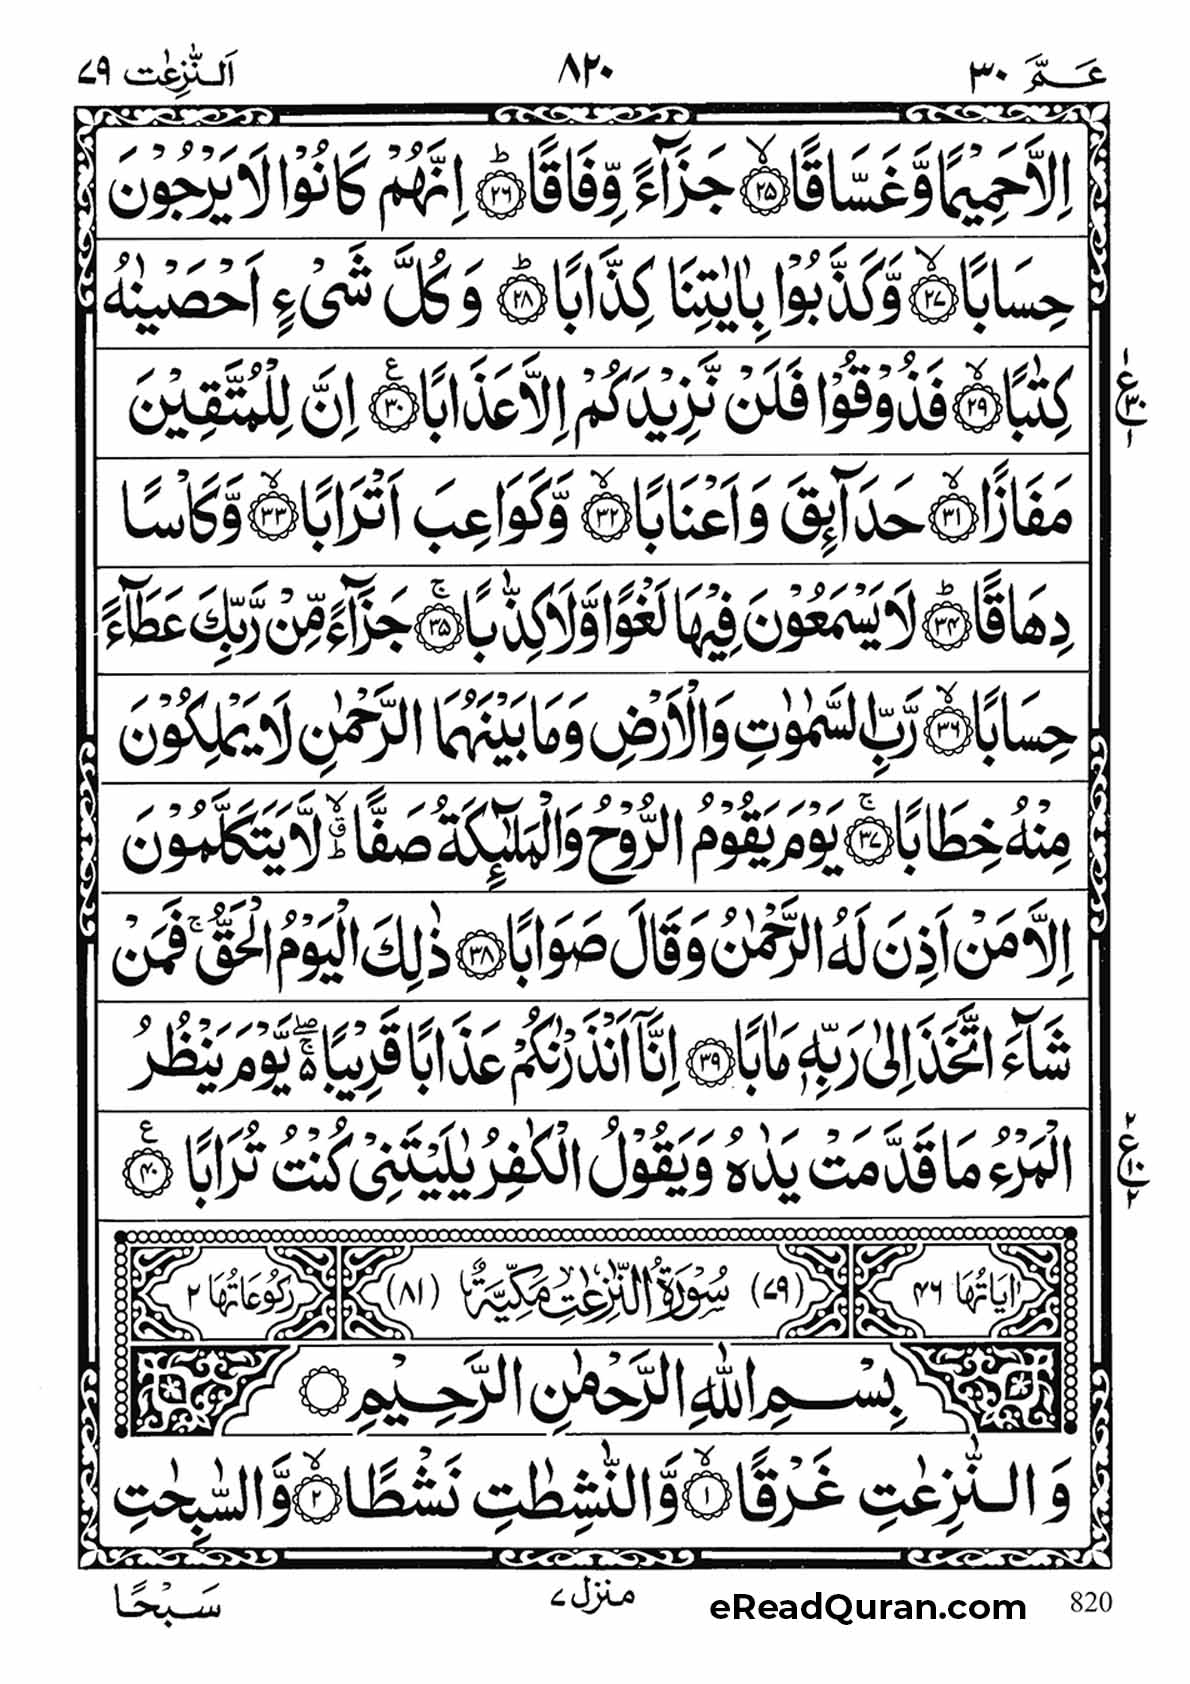 عَمَّ ٣٠ ٨٢٠ اَلنّٰزِعٰت ٧٩
اِلَّا حَمِيْمًا وَّغَسَّاقًا ۙ ٢٥ جَزَآءً وِّفَاقًا ؕ ٢٦ اِنَّهُمْ كَانُوْا لَا يَرْجُوْنَ
حِسَابًا ۙ ٢٧ وَّكَذَّبُوْا بِاٰيٰتِنَا كِذَّابًا ؕ ٢٨ وَكُلَّ شَيْءٍ اَحْصَيْنٰهُ
كِتٰبًا ۙ ٢٩ فَذُوْقُوْا فَلَنْ نَّزِيْدَكُمْ اِلَّا عَذَابًا ع ٣٠ اِنَّ لِلْمُتَّقِيْنَ
١ ع ٣٠ ١
مَفَازًا ۙ ٣١ حَدَآئِقَ وَاَعْنَابًا ۙ ٣٢ وَّكَوَاعِبَ اَتْرَابًا ۙ ٣٣ وَّكَاْسًا
دِهَاقًا ؕ ٣٤ لَا يَسْمَعُوْنَ فِيْهَا لَغْوًا وَّلَا كِذّٰبًا ۚ ٣٥ جَزَآءً مِّنْ رَّبِّكَ عَطَآءً
حِسَابًا ۙ ٣٦ رَّبِّ السَّمٰوٰتِ وَالْاَرْضِ وَمَا بَيْنَهُمَا الرَّحْمٰنِ لَا يَمْلِكُوْنَ
مِنْهُ خِطَابًا ۚ ٣٧ يَوْمَ يَقُوْمُ الرُّوْحُ وَالْمَلٰٓئِكَةُ صَفًّا ۙ ق ط لَّا يَتَكَلَّمُوْنَ
اِلَّا مَنْ اَذِنَ لَهُ الرَّحْمٰنُ وَقَالَ صَوَابًا ٣٨ ذٰلِكَ الْيَوْمُ الْحَقُّ ۚ فَمَنْ
شَآءَ اتَّخَذَ اِلٰى رَبِّهٖ مَاٰبًا ٣٩ اِنَّآ اَنْذَرْنٰكُمْ عَذَابًا قَرِيْبًا ۖ ۚ ۵ يَّوْمَ يَنْظُرُ
الْمَرْءُ مَا قَدَّمَتْ يَدٰهُ وَيَقُوْلُ الْكٰفِرُ يٰلَيْتَنِيْ كُنْتُ تُرَابًا ع ٤٠
٢ ع ١٠ ٢
اٰيَاتُهَا ٤٦ (٧٩) سُوْرَةُ النّٰزِعٰتِ مَكِّيَّةٌ (٨١) رُكُوْعَاتُهَا ٢
بِسْمِ اللّٰهِ الرَّحْمٰنِ الرَّحِيْمِ
وَالنّٰزِعٰتِ غَرْقًا ۙ ١ وَّالنّٰشِطٰتِ نَشْطًا ۙ ٢ وَّالسّٰبِحٰتِ
سَبْحًا منزل ٧ eReadQuran.com 820